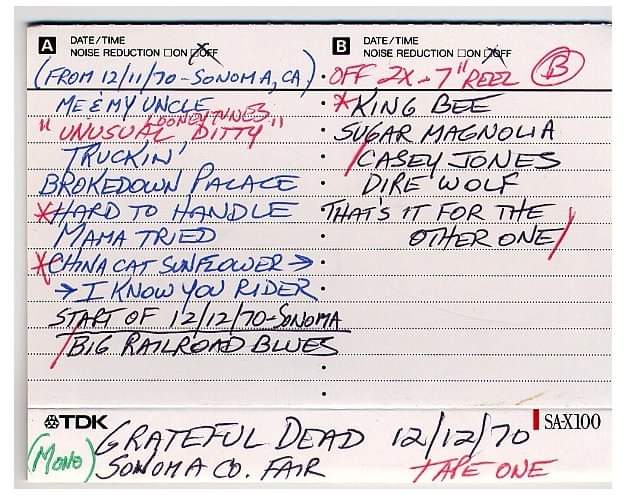 A DATE/TIME
NOISE REDUCTION □ON □OFF
(FROM 12/11/70 - SONOMA, CA)
ME & MY UNCLE
LOONEY TUNES
"UNUSUAL DITTY"
TRUCKIN'
BROKEDOWN PALACE
*HARD TO HANDLE
MAMA TRIED
*CHINA CAT SUNFLOWER →
→ I KNOW YOU RIDER
START OF 12/12/70 - SONOMA
BIG RAILROAD BLUES
B DATE/TIME
NOISE REDUCTION □ON □OFF
OFF 2X - 7" REEL B
*KING BEE
SUGAR MAGNOLIA
CASEY JONES
DIRE WOLF
THAT'S IT FOR THE
OTHER ONE
TDK
SA-X100
(MONO) GRATEFUL DEAD 12/12/70
SONOMA CO. FAIR TAPE ONE